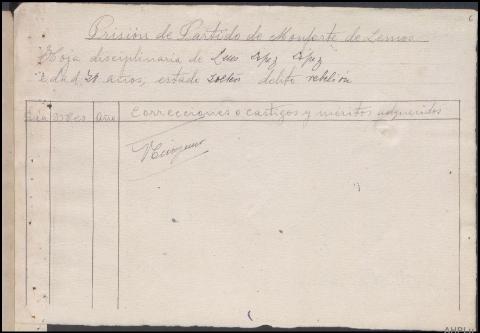 6
Prisión de Partido de Monforte de Lemos
Hoja disciplinaria de Luis López López
Edad 21 años, estado soltero delito rebelión
Día Mes Año Correcciones o castigos y méritos adquiridos
Ninguno